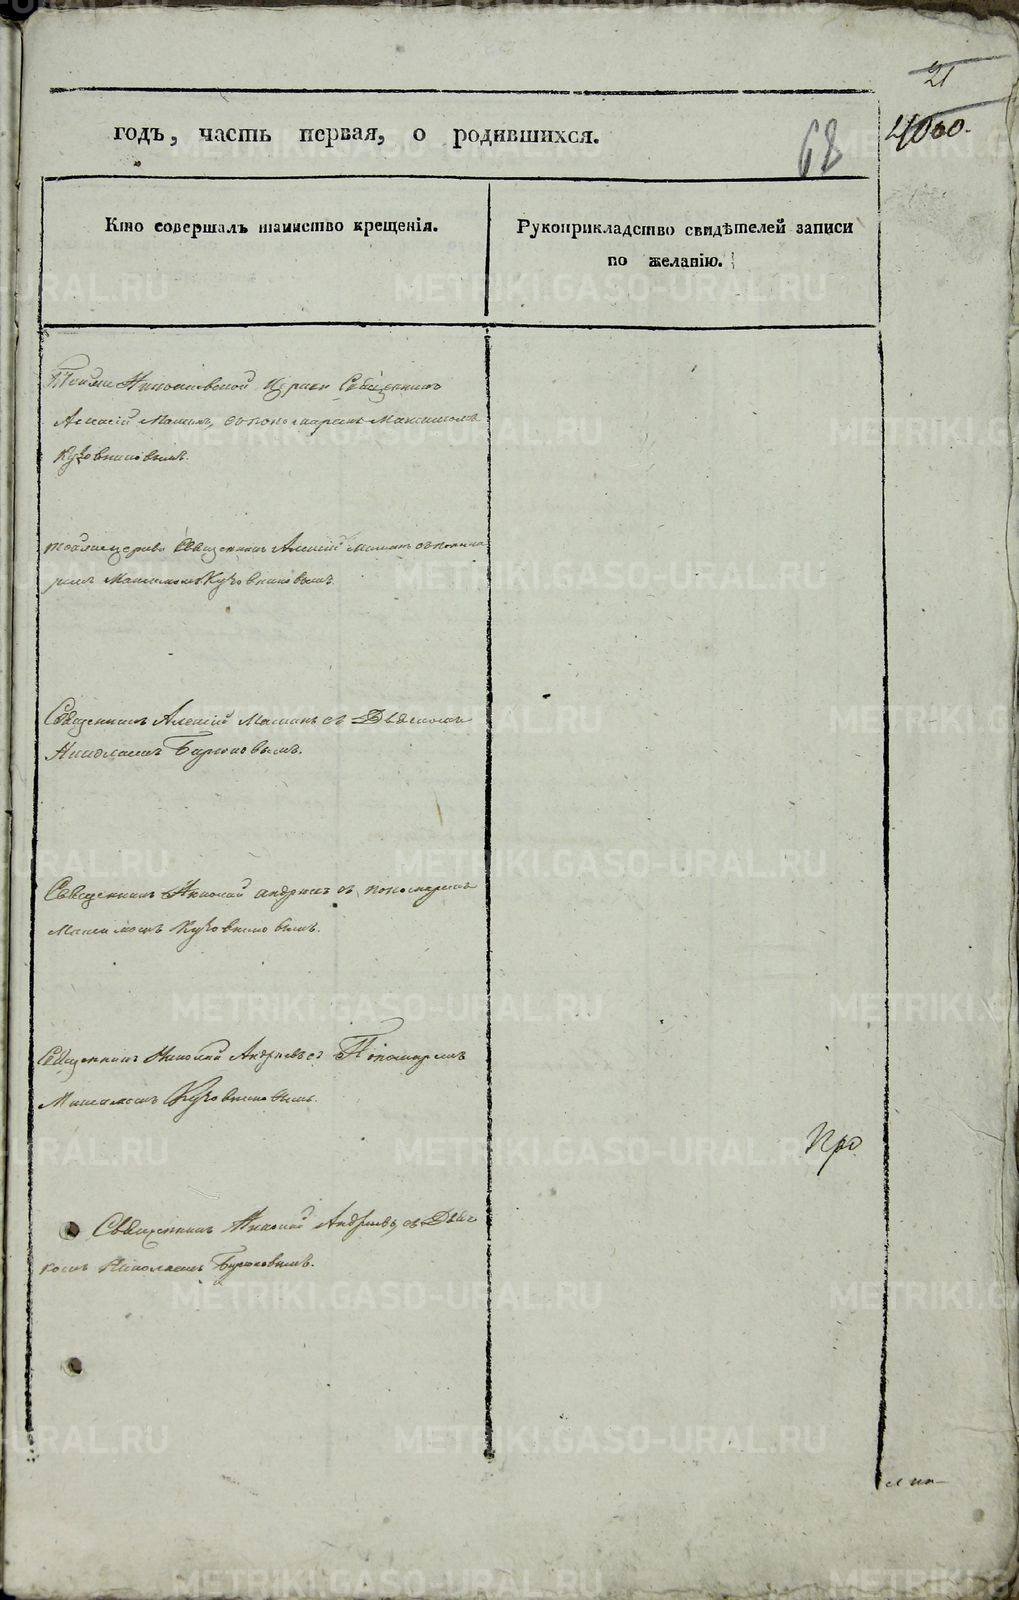 21
4060.
68
годъ, часть первая, о родившихся.
Кто совершалъ таинство крещенія.
Рукоприкладство свидѣтелей записи
по желанію.
Николаевской Церкви Священникъ
Алексій Маминъ, съ пономаремъ Максимомъ
Кузовниковымъ.
тойже церкви Священникъ Алексій Маминъ съ понома
ремъ Максимомъ Кузовниковымъ
Священникъ Алексій Маминъ съ Дьячкомъ
Николаемъ Бирюковымъ.
Священникъ Николай Андреевъ съ пономаремъ
Максимомъ Кузовниковымъ.
Священникъ Николай Андреевъ съ Пономаремъ
Максимомъ Кузовниковымъ.
Про
Священникъ Николай Андреевъ, съ Дьяч
комъ Николаемъ Бирюковымъ.
METRIKI.GASO-URAL.RU